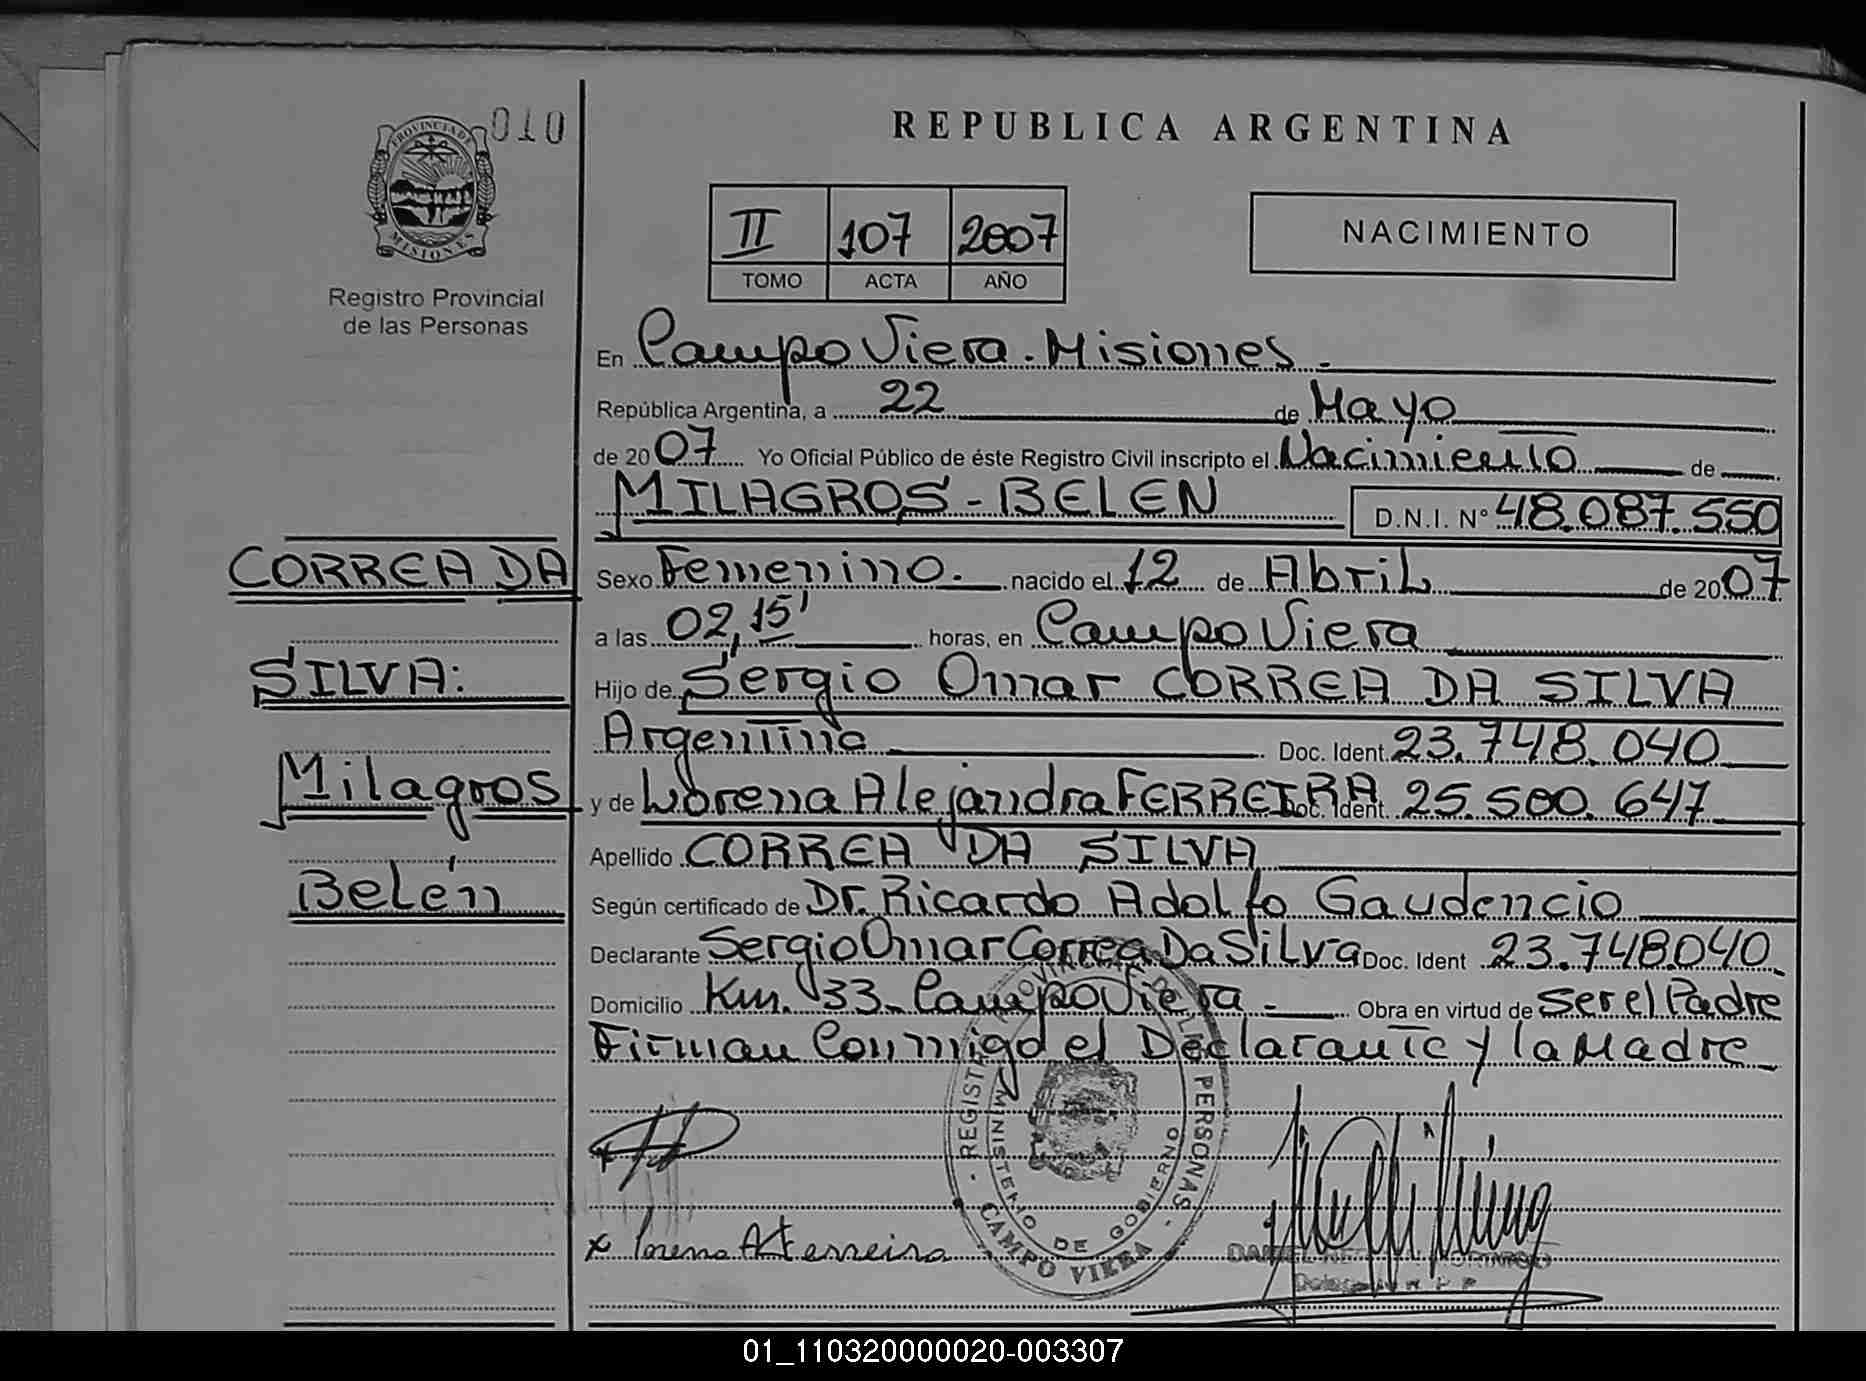 010
PROVINCIA DE
MISIONES
Registro Provincial
de las Personas
REPUBLICA ARGENTINA
II 107 2007
TOMO ACTA AÑO
NACIMIENTO
En Campo Viera - Misiones.
República Argentina, a 22 de Mayo
de 2007 Yo Oficial Público de éste Registro Civil inscripto el Nacimiento de
MILAGROS - BELEN D.N.I. N° 48.087.550
CORREA DA
SILVA:
Milagros
Belén
Sexo Femenino. nacido el 12 de Abril de 2007
a las 02,15' horas, en Campo Viera
Hijo de Sergio Omar CORREA DA SILVA
Argentina Doc. Ident. 23.748.040
y de Lorena Alejandra FERREIRA Doc. Ident. 25.500.647
Apellido CORREA DA SILVA
Según certificado de Dr. Ricardo Adolfo Gaudencio
Declarante Sergio Omar Correa Da Silva Doc. Ident 23.748.040
Domicilio Km. 33 - Campo Viera - Obra en virtud de Ser el Padre
Firman Conmigo el Declarante y la Madre
x Lorena A Ferreira
PERSONAS
MINISTERIO DE GOBIERNO
CAMPO VIERA
01_110320000020-003307